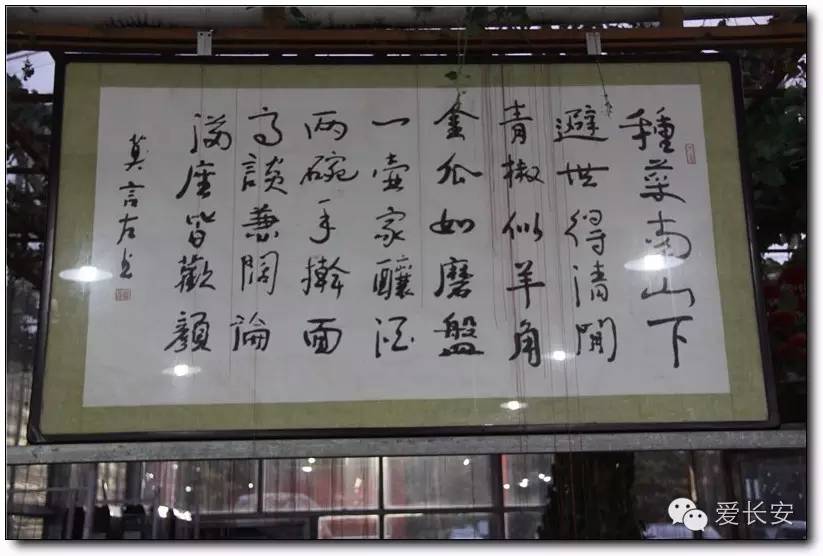 種菜南山下
避世得清閒
青椒似羊角
金瓜如磨盤
一壶家釀酒
两碗手擀面
高談兼阔論
满座皆歡顏
莫言左书
爱长安